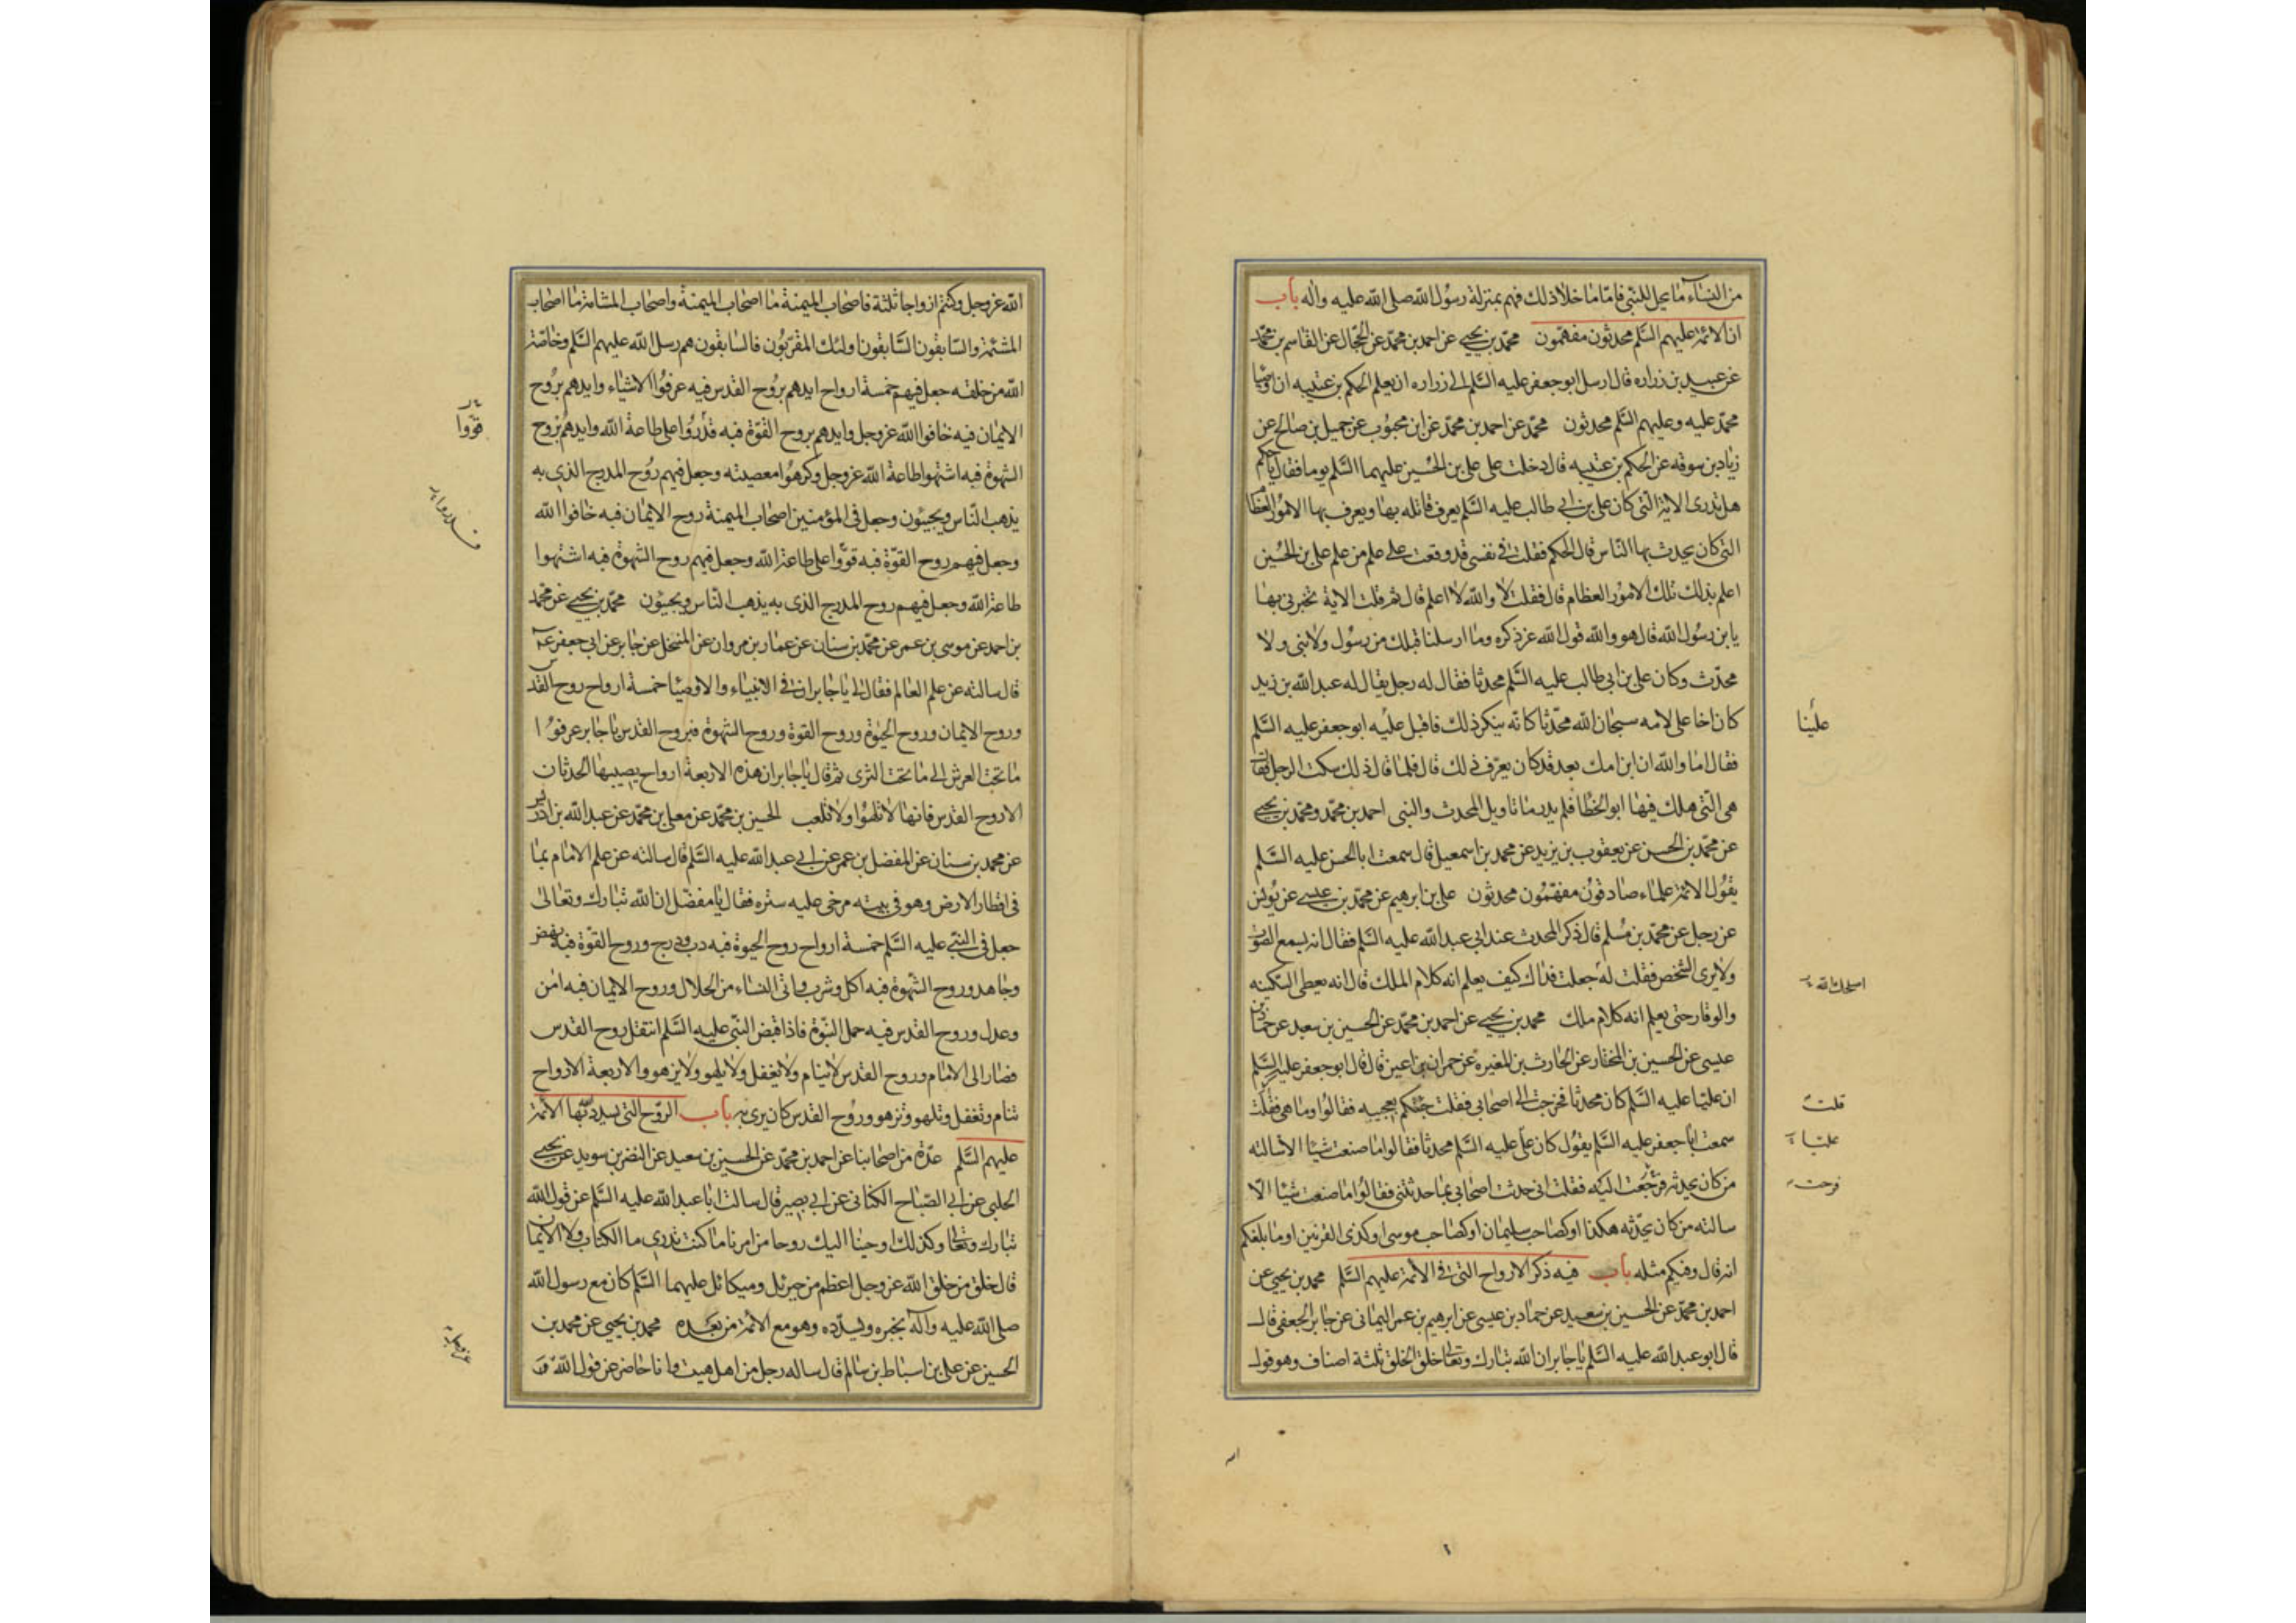 من النساء ما يحل للنبي فاما ما خلا ذلك فهم بمنزلة رسول الله صلى الله عليه واله باب
ان الائمة عليهم السلم محدثون مفهمون محمد بن يحيى عن احمد بن محمد عن الحجال عن القاسم بن محمد
عن عبيد بن زراره قال ارسل ابو جعفر عليه السلم الى زراره ان يعلم الحكم بن عتيبه ان اوصيا
محمد عليه وعليهم السلم محدثون محمد عن احمد بن محمد عن ابن محبوب عن جميل بن صالح عن
زياد بن سوقه عن الحكم بن عتيبه قال دخلت على علي بن الحسين عليهما السلم يوما فقال يا حكم
هل تدرى الاية التي كان علي بن ابي طالب عليه السلم يعرف قاتله بها ويعرف بها الامور العظام
التي كان يحدث بها الناس قال الحكم فقلت في نفسي قد وقعت على علم من علم علي بن الحسين
اعلم بذلك تلك الامور العظام قال فقلت لا والله لا اعلم قال ثم قلت الاية تخبرني بها
يابن رسول الله قال هو والله قول الله عز ذكره وما ارسلنا قبلك من رسول ولا نبي ولا
محدث وكان علي بن ابي طالب عليه السلم محدثا فقال له رجل يقال له عبد الله بن زيد
كان اخا علي لامه سبحان الله محدثا كانه ينكر ذلك فاقبل عليه ابو جعفر عليه السلم
علينا
فقال اما والله ان ابن امك بعد قد كان يعرف ذلك قال فلما قال ذلك سكت الرجل فقال
هي التي هلك فيها ابو الخطاب فلم يدر ما تاويل المحدث والنبي احمد بن محمد ومحمد بن يحيى
عن محمد بن الحسن عن يعقوب بن يزيد عن محمد بن اسمعيل قال سمعت ابا الحسن عليه السلم
يقول الائمة علماء صادقون مفهمون محدثون علي بن ابرهيم عن محمد بن عيسى عن يونس
عن رجل عن محمد بن مسلم قال ذكر المحدث عند ابي عبد الله عليه السلم فقال انه يسمع الصوت
ولا يرى الشخص فقلت له جعلت فداك كيف يعلم انه كلام الملك قال انه يعطى السكينه
اصلحك الله
والوقار حتى يعلم انه كلام ملك محمد بن يحيى عن احمد بن محمد عن الحسين بن سعيد عن حماد بن
عيسى عن الحسين بن المختار عن الحارث بن المغيره عن حمران بن اعين قال قال ابو جعفر عليه السلم
ان عليا عليه السلم كان محدثا فخرجت الى اصحابي فقلت جئتكم بعجيبه فقالوا وما هي فقلت
قلت
سمعت ابا جعفر عليه السلم يقول كان علي عليه السلم محدثا فقالوا ما صنعت شيئا الا سالته
عليا
من كان يحدثه فرجعت اليه فقلت اني حدثت اصحابي بما حدثتني فقالوا ما صنعت شيئا الا
سالته من كان يحدثه هكذا او كصاحب سليمان او كصاحب موسى او كذى القرنين او ما بلغكم
انه قال وفيكم مثله باب فيه ذكر الارواح التي في الائمة عليهم السلم محمد بن يحيى عن
احمد بن محمد عن الحسين بن سعيد عن حماد بن عيسى عن ابرهيم بن عمر اليماني عن جابر الجعفي قال
قال ابو عبد الله عليه السلم يا جابر ان الله تبارك وتعالى خلق الخلق ثلثة اصناف وهو قول
الله عز وجل وكنتم ازواجا ثلثة فاصحاب الميمنة ما اصحاب الميمنة واصحاب المشامة ما اصحاب
المشئمة والسابقون السابقون اولئك المقربون فالسابقون هم رسل الله عليهم السلم وخاصة
الله من خلقه جعل فيهم خمسة ارواح ايدهم بروح القدس فبه عرفوا الاشياء وايدهم بروح
الايمان فبه خافوا الله عز وجل وايدهم بروح القوة فبه قدروا على طاعة الله وايدهم بروح
قووا
الشهوة فبه اشتهوا طاعة الله عز وجل وكرهوا معصيته وجعل فيهم روح المدرج الذي به
يذهب الناس ويجيئون وجعل في المؤمنين اصحاب الميمنة روح الايمان فبه خافوا الله
وجعل فيهم روح القوة فبه قووا على طاعة الله وجعل فيهم روح الشهوة فبه اشتهوا
طاعة الله وجعل فيهم روح المدرج الذي به يذهب الناس ويجيئون محمد بن يحيى عن محمد
بن احمد عن موسى بن عمر عن محمد بن سنان عن عمار بن مروان عن المنخل عن جابر عن ابي جعفر ع
قال سالته عن علم العالم فقال لي يا جابر ان في الانبياء والاوصيا خمسة ارواح روح القدس
وروح الايمان وروح الحيوة وروح القوة وروح الشهوة فبروح القدس يا جابر عرفوا
ما تحت العرش الى ما تحت الثرى ثم قال يا جابر ان هذه الاربعة ارواح يصيبها الحدثان
الا روح القدس فانها لا تلهوا ولا تلعب الحسين بن محمد عن معلى بن محمد عن عبد الله بن ادريس
عن محمد بن سنان عن المفضل بن عمر عن ابي عبد الله عليه السلم قال سالته عن علم الامام بما
في اقطار الارض وهو في بيته مرخى عليه ستره فقال يا مفضل ان الله تبارك وتعالى
جعل في النبي عليه السلم خمسة ارواح روح الحيوة فبه دب ودرج وروح القوة فبه نهض
وجاهد وروح الشهوة فبه اكل وشرب واتى النساء من الحلال وروح الايمان فبه امن
وعدل وروح القدس فبه حمل النبوة فاذا قبض النبي عليه السلم انتقل روح القدس
فصار الى الامام وروح القدس لا ينام ولا يغفل ولا يلهو ولا يزهو والاربعة الارواح
تنام وتغفل وتلهو وتزهو وروح القدس كان يرى به باب الروح التي يسدد الله بها الائمة
عليهم السلم عدة من اصحابنا عن احمد بن محمد عن الحسين بن سعيد عن النضر بن سويد عن يحيى
الحلبي عن ابي الصباح الكناني عن ابي بصير قال سالت ابا عبد الله عليه السلم عن قول الله
تبارك وتعالى وكذلك اوحينا اليك روحا من امرنا ما كنت تدري ما الكتاب ولا الايمان
قال خلق من خلق الله عز وجل اعظم من جبرئل وميكائل عليهما السلم كان مع رسول الله
صلى الله عليه واله يخبره ويسدده وهو مع الائمة من بعده محمد بن يحيى عن محمد بن
الحسين عن علي بن اسباط بن سالم قال ساله رجل من اهل هيت وانا حاضر عن قول الله